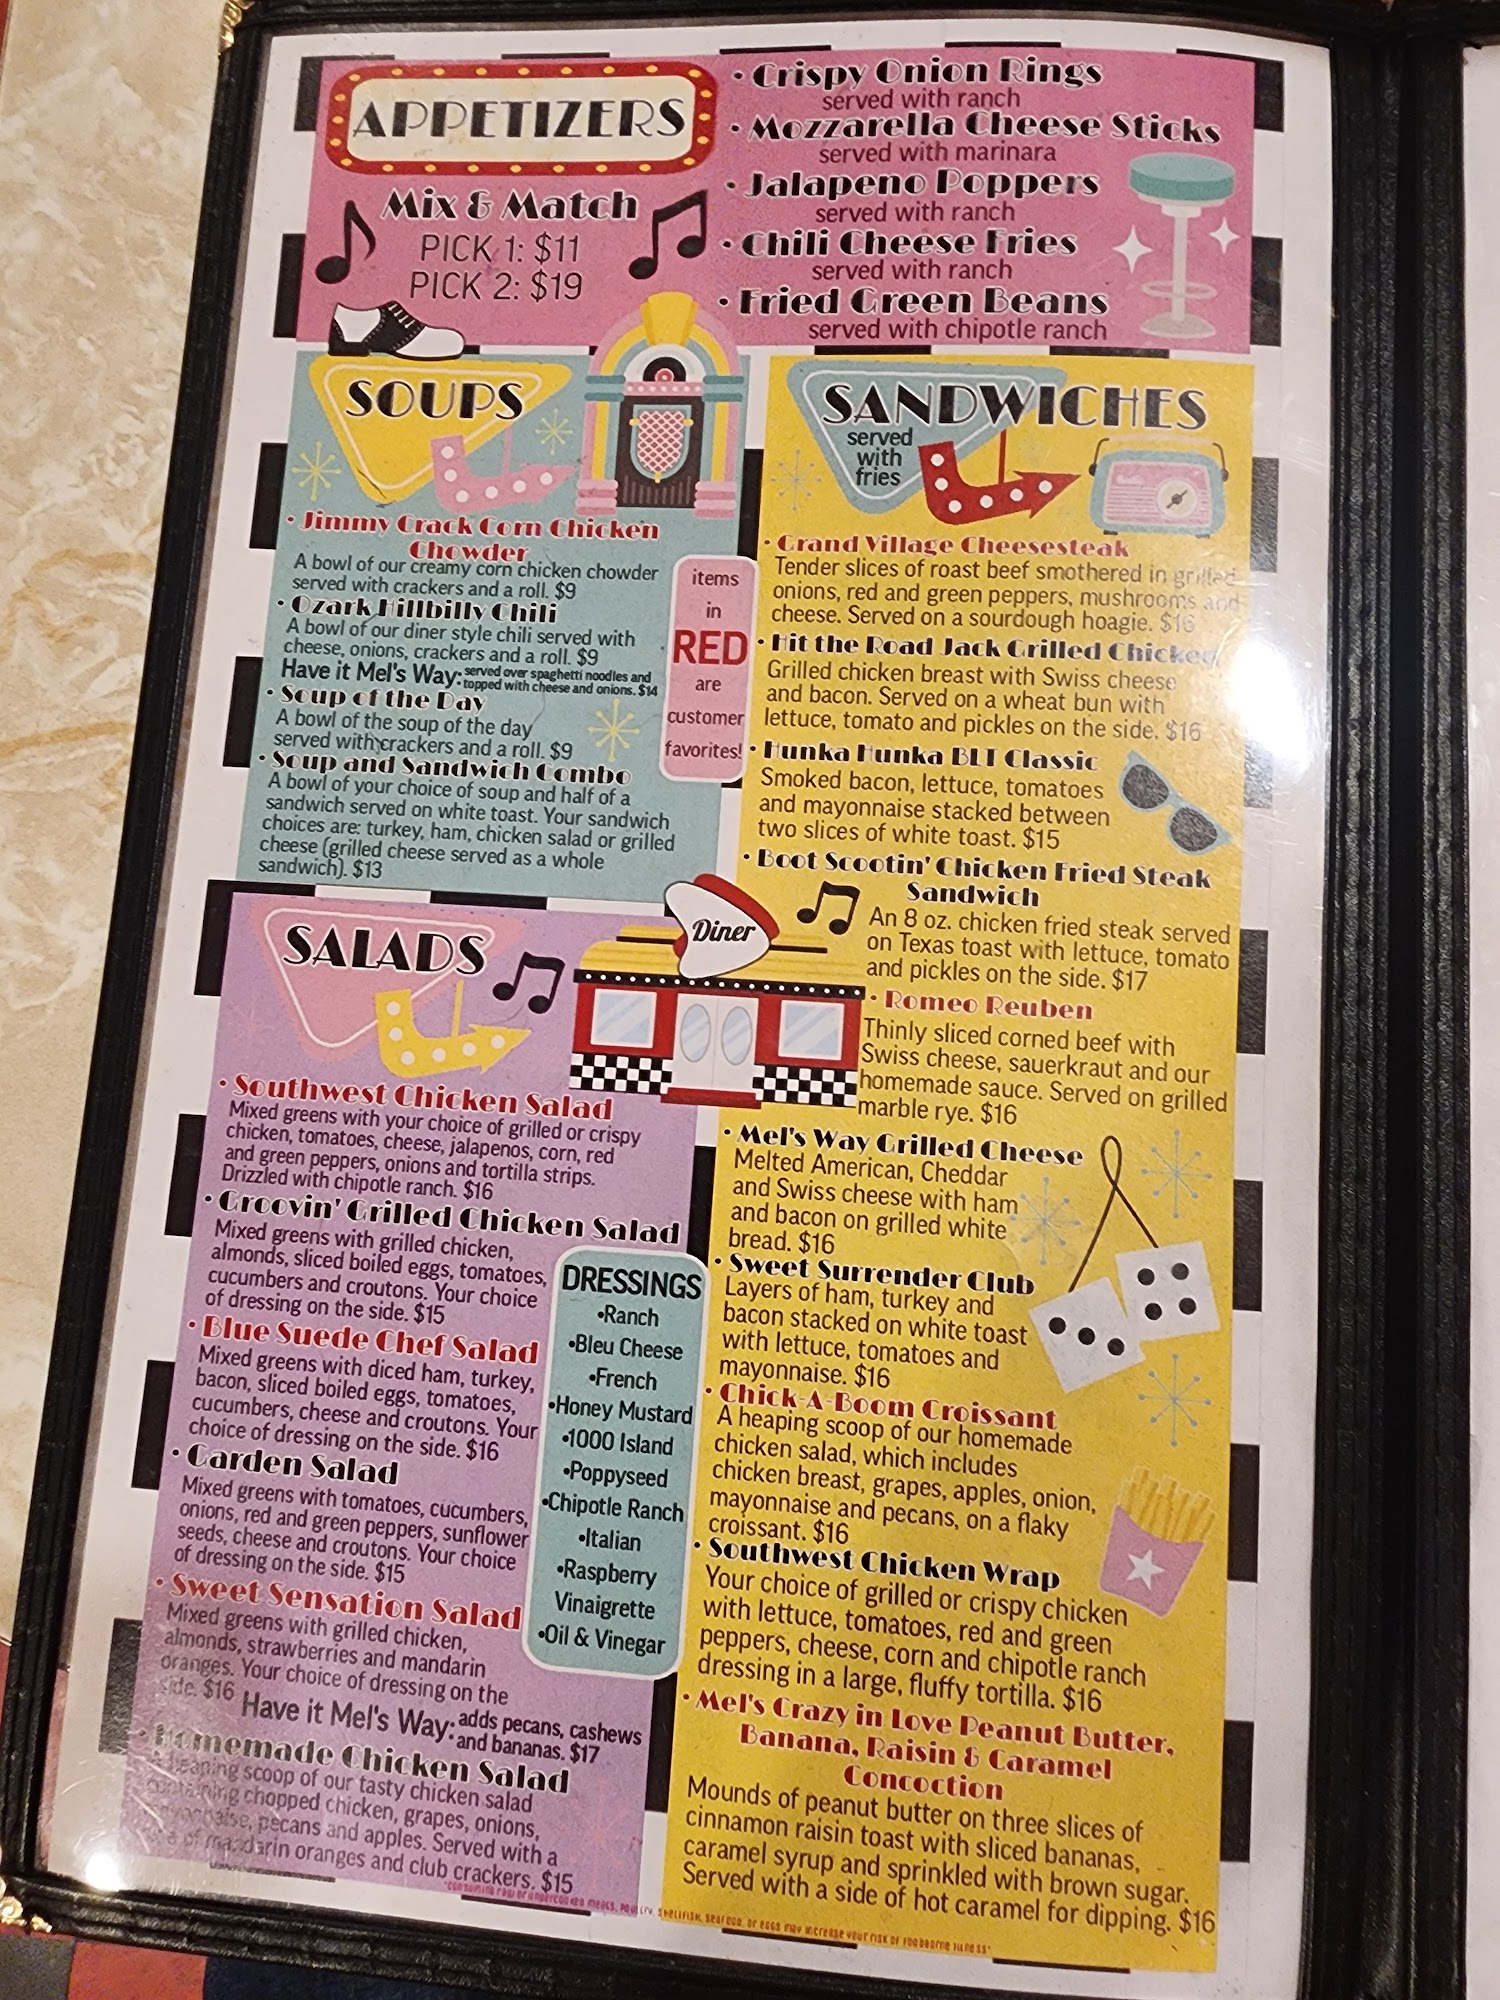 APPETIZERS
Mix & Match
PICK 1: $11
PICK 2: $19
• Crispy Onion Rings
served with ranch
• Mozzarella Cheese Sticks
served with marinara
• Jalapeno Poppers
served with ranch
• Chili Cheese Fries
served with ranch
• Fried Green Beans
served with chipotle ranch
SOUPS
• Jimmy Crack Corn Chicken
Chowder
A bowl of our creamy corn chicken chowder
served with crackers and a roll. $9
• Ozark Hillbilly Chili
A bowl of our diner style chili served with
cheese, onions, crackers and a roll. $9
Have it Mel's Way: served over spaghetti noodles and
topped with cheese and onions. $14
• Soup of the Day
A bowl of the soup of the day
served with crackers and a roll. $9
• Soup and Sandwich Combo
A bowl of your choice of soup and half of a
sandwich served on white toast. Your sandwich
choices are: turkey, ham, chicken salad or grilled
cheese (grilled cheese served as a whole
sandwich). $13
items
in
RED
are
customer
favorites!
SALADS
• Southwest Chicken Salad
Mixed greens with your choice of grilled or crispy
chicken, tomatoes, cheese, jalapenos, corn, red
and green peppers, onions and tortilla strips.
Drizzled with chipotle ranch. $16
• Groovin' Grilled Chicken Salad
Mixed greens with grilled chicken,
almonds, sliced boiled eggs, tomatoes,
cucumbers and croutons. Your choice
of dressing on the side. $15
• Blue Suede Chef Salad
Mixed greens with diced ham, turkey,
bacon, sliced boiled eggs, tomatoes,
cucumbers, cheese and croutons. Your
choice of dressing on the side. $16
• Garden Salad
Mixed greens with tomatoes, cucumbers,
onions, red and green peppers, sunflower
seeds, cheese and croutons. Your choice
of dressing on the side. $15
• Sweet Sensation Salad
Mixed greens with grilled chicken,
almonds, strawberries and mandarin
oranges. Your choice of dressing on the
side. $16
Have it Mel's Way: adds pecans, cashews
and bananas. $17
• Homemade Chicken Salad
A heaping scoop of our tasty chicken salad
containing chopped chicken, grapes, onions,
mayonnaise, pecans and apples. Served with a
of mandarin oranges and club crackers. $15
DRESSINGS
•Ranch
•Bleu Cheese
•French
•Honey Mustard
•1000 Island
•Poppyseed
•Chipotle Ranch
•Italian
•Raspberry
Vinaigrette
•Oil & Vinegar
Diner
SANDWICHES
served
with
fries
• Grand Village Cheesesteak
Tender slices of roast beef smothered in grilled
onions, red and green peppers, mushrooms and
cheese. Served on a sourdough hoagie. $16
• Hit the Road Jack Grilled Chicken
Grilled chicken breast with Swiss cheese
and bacon. Served on a wheat bun with
lettuce, tomato and pickles on the side. $16
• Hunka Hunka BLT Classic
Smoked bacon, lettuce, tomatoes
and mayonnaise stacked between
two slices of white toast. $15
• Boot Scootin' Chicken Fried Steak
Sandwich
An 8 oz. chicken fried steak served
on Texas toast with lettuce, tomato
and pickles on the side. $17
• Romeo Reuben
Thinly sliced corned beef with
Swiss cheese, sauerkraut and our
homemade sauce. Served on grilled
marble rye. $16
• Mel's Way Grilled Cheese
Melted American, Cheddar
and Swiss cheese with ham
and bacon on grilled white
bread. $16
• Sweet Surrender Club
Layers of ham, turkey and
bacon stacked on white toast
with lettuce, tomatoes and
mayonnaise. $16
• Chick-A-Boom Croissant
A heaping scoop of our homemade
chicken salad, which includes
chicken breast, grapes, apples, onion,
mayonnaise and pecans, on a flaky
croissant. $16
• Southwest Chicken Wrap
Your choice of grilled or crispy chicken
with lettuce, tomatoes, red and green
peppers, cheese, corn and chipotle ranch
dressing in a large, fluffy tortilla. $16
• Mel's Crazy in Love Peanut Butter,
Banana, Raisin & Caramel
Concoction
Mounds of peanut butter on three slices of
cinnamon raisin toast with sliced bananas,
caramel syrup and sprinkled with brown sugar.
Served with a side of hot caramel for dipping. $16
*Consuming raw or undercooked meats, poultry, shellfish, seafood, or eggs may increase your risk of foodborne illness*